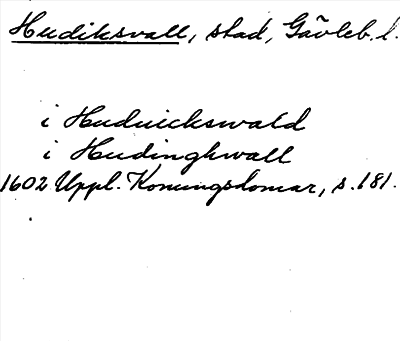 Hudiksvall, stad, Gävleb. l.
i Huduickswald
i Hudinghwall
1602 Uppl. Konungsdomar, s. 181.